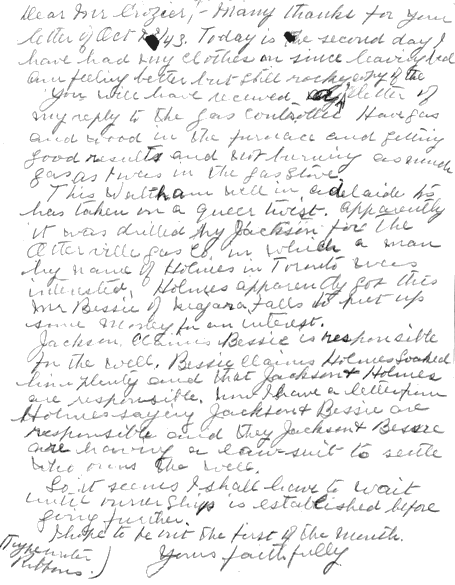 Dear Mr Crozier, - Many thanks for your
letter of Oct 43. Today is the second day I
have had my clothes on since leaving bed
am feeling better but still rocky
You will have received letter of
my reply to the gas controller Have gas
and wood in the furnace and getting
good results and not burning as much
gas as twas in the gas stove.
This Waltham well in Adelaide
has taken on a queer twist. Apparently
it was drilled by Jackson for the
Otterville gas Co in which a man
by name of Holmes in Toronto was
interested, Holmes apparently got this
Mr Bessie of Niagara Falls to put up
some money for an interest.
Jackson claims Bessie is responsible
for the well. Bessie claims Holmes soaked
him plenty and that Jackson & Holmes
are responsible. Now I have a letter from
Holmes saying Jackson & Bessie are
responsible and they Jackson & Bessie
are having a law-suit to settle
who owns the well.
So it seems I shall have to wait
until ownership is established before
going further.
I hope to be out the first of the month.
Yours faithfully
(Typewriter
Ribbons.)